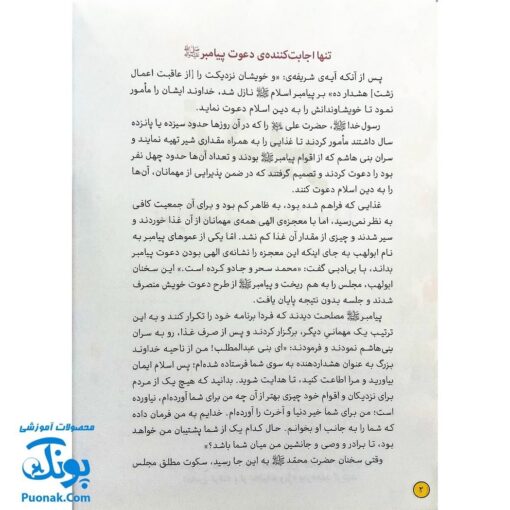 تنها اجابت‌کننده‌ی دعوت پیامبر ﷺ
پس از آنکه آیه‌ی شریفه‌ی: «و خویشان نزدیکت را [از عاقبت اعمال
زشت] هشدار ده» بر پیامبر اسلام ﷺ نازل شد، خداوند ایشان را مأمور
نمود تا خویشاوندانش را به دین اسلام دعوت نماید.
رسول خدا ﷺ، حضرت علی را که در آن روزها حدود سیزده یا پانزده
سال داشتند مأمور کردند تا غذایی را به همراه مقداری شیر تهیه نمایند و
سران بنی هاشم که از اقوام پیامبر ﷺ بودند و تعداد آن‌ها حدود چهل نفر
بود را دعوت کردند و تصمیم گرفتند که در ضمن پذیرایی از مهمانان، آن‌ها
را به دین اسلام دعوت کنند.
غذایی که فراهم شده بود، به ظاهر کم بود و برای آن جمعیت کافی
به نظر نمی‌رسید، اما با معجزه‌ی الهی همه‌ی مهمانان از آن غذا خوردند و
سیر شدند و چیزی از مقدار آن غذا کم نشد. امّا یکی از عموهای پیامبر به
نام ابولهب به جای اینکه این معجزه را نشانه‌ی الهی بودن دعوت پیامبر
بداند، با بی‌ادبی گفت: «محمد سحر و جادو کرده است.» این سخنان
ابولهب، مجلس را به هم ریخت و پیامبر ﷺ از طرح دعوت خویش منصرف
شدند و جلسه بدون نتیجه پایان یافت.
پیامبر ﷺ مصلحت دیدند که فردا برنامه خود را تکرار کنند و به این
ترتیب یک مهمانی دیگر، برگزار کردند و پس از صرف غذا، رو به سران
بنی‌هاشم نمودند و فرمودند: «ای بنی عبدالمطلب! من از ناحیه خداوند
بزرگ به عنوان هشداردهنده به سوی شما فرستاده شده‌ام؛ پس اسلام ایمان
بیاورید و مرا اطاعت کنید، تا هدایت شوید. بدانید که هیچ یک از مردم
برای نزدیکان و اقوام خود چیزی بهتر از آن چه من برای شما آورده‌ام، نیاورده
است؛ من برای شما خیر دنیا و آخرت را آورده‌ام. خدایم به من فرمان داده
که شما را به جانب او بخوانم. حال کدام یک از شما پشتیبان من خواهد
بود، تا برادر و وصی و جانشین من میان شما باشد؟»
وقتی سخنان حضرت محمّد ﷺ به این جا رسید، سکوت مطلق مجلس
۲
محصولات آموزشی
پونک
Puonak.Com